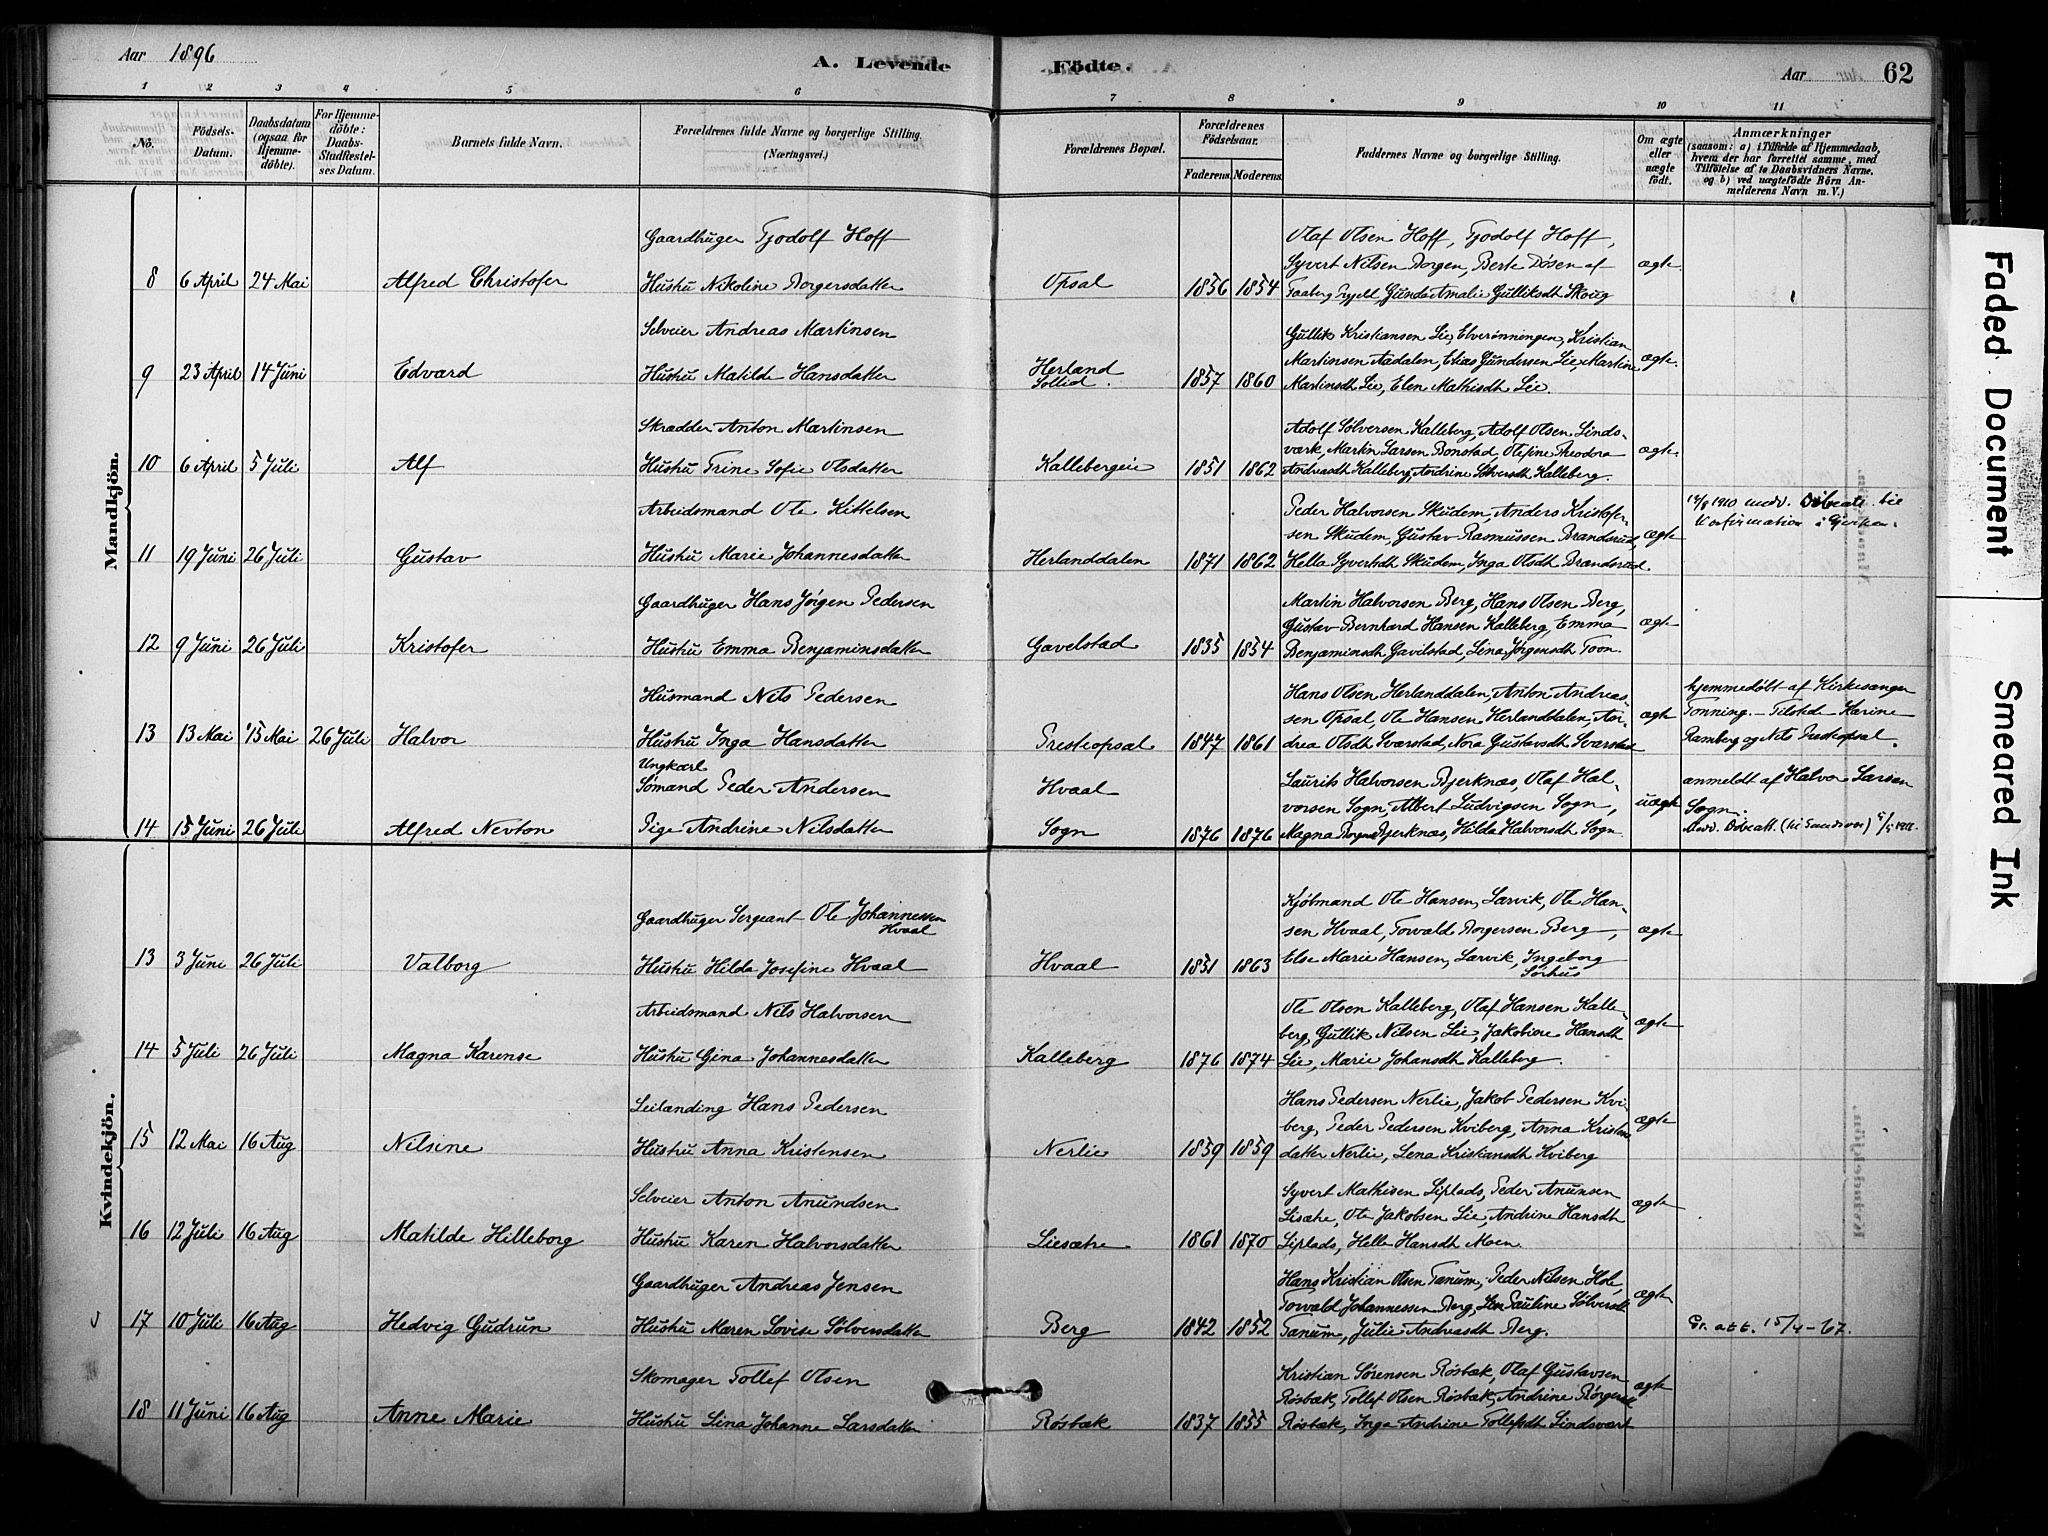 Aar 1896
A. Levende
Födte.
Aar 62
1 2 3 4 5 6 7 8 9 10 11
No.
Födsels-Datum.
Daabsdatum (ogsaa for Hjemme-döbte).
For Hjemme-döbte: Daabs-Stadfæstel-ses Datum.
Barnets fulde Navn.
Forældrenes fulde Navne og borgerlige Stilling.
(Næringsvei.)
Forældrenes Bopæl.
Forældrenes Födselsaar.
Faderens. Moderens.
Faddernes Navne og borgerlige Stilling.
Om ægte eller uægte födt.
Anmærkninger
(saasom: a) i Tilfælde af Hjemmedaab,
hvem der har forrettet samme, med
Tilföielse af to Daabsvidners Navne,
og b) ved uægtefödte Börn An-
melderens Navn m. V.)
Mandkjön.
Gaardbruger Tjodolf Hoff
Olaf Olsen Hoff, Tjodolf Hoff,
Syvert Nilsen Borgen, Berte Døsen af
8 6 April 24 Mai Alfred Christofer Hustru Nikoline Borgersdatter Opsal 1856 1854 Faaberg Prgjeld, Gunda Amalie Gulliksdt Skoug ægte.
Selveier Andreas Martinsen
Gullik Kristiansen Lie, Elverønningen, Kristian
Martinsen Aadalen, Elias Gundersen Lie, Martine
9 23 April 14 Juni Edvard Hustru Matilde Hansdatter Herland Sollid. 1857 1860 Martinsdt Lie, Elen Mathisdt Lie. ægte.
Skrædder Anton Martinsen
Adolf Sølversen Kalleberg, Adolf Olsen Linds-
værk, Martin Larsen Bonstad, Olefine Theodora
10 6 April 5 Juli Alf Hustru Trine Sofie Olsdatter Kallebergeie 1851 1862 Andreasdt Kalleberg, Andrine Sølversdt Kalleberg. ægte
Arbeidsmand Ole Kittelsen
Peder Halvorsen Skudem, Anders Kristofer-
sen Skudem, Gustav Rasmussen Brændsrud,
11 19 Juni 26 Juli Gustav Hustru Marie Johannesdatter Herlanddalen 1871 1862 Hella Syvertsdt Skudem, Inga Olsdt Brændsrud. ægte
1910 medd. Døbeatt. til
Konfirmation i
Gaardbruger Hans Jørgen Pedersen
Martin Halvorsen Berg, Hans Olsen Berg,
Gustav Bernhard Hansen Kalleberg, Emma
12 9 Juni 26 Juli Kristofer Hustru Emma Benjaminsdatter Gavelstad 1835 1854 Benjaminsdt Gavelstad, Lina Jørgensdt Toon. ægte
Husmand Nils Pedersen
Hans Olsen Herlanddalen, Anton Andreas-
sen Opsal, Ole Hansen Herlanddalen, An-
13 13 Mai 15 Mai 26 Juli Halvor Hustru Inga Hansdatter Presteopsal 1847 1861 drea Olsdt Sværstad, Nora Gustavsdt Sværstad ægte
hjemmedøbt af Kirkesanger
Tonning. – Tilstede Karine
Ramberg og Nils Presteopsal.
Ungkarl
Sømand Peder Andersen Hvaal
Laurits Halvorsen Bjerknæs, Olaf Hal-
vorsen Sogn, Albert Ludvigsen Sogn,
14 15 Juni 26 Juli Alfred Nevton Pige Andrine Nilsdatter Sogn 1876 1876 Magna Bjerknæs, Hilda Halvorsdt Sogn. uægte
anmeldt af Halvor Larsen
Sogn.
Medd. Døbeatt.
Kvindekjön.
Gaardbruger Sergeant Ole Johannessen
Hvaal
Kjøbmand Ole Hansen, Larvik, Ole Han-
sen Hvaal, Torvald Borgersen Berg,
13 3 Juni 26 Juli Valborg Hustru Hilda Josefine Hvaal Hvaal 1851 1863 Else Marie Hansen, Larvik, Ingeborg
Sørhus ægte
Arbeidsmand Nils Halvorsen
Ole Olsen Kalleberg, Olaf Hansen Kalle-
berg, Gullik Nilsen Lie, Jakobine Hansdt
14 5 Juli 26 Juli Magna Karense Hustru Gina Johannesdatter Kalleberg 1876 1874 Lie, Marie Johansdt Kalleberg. ægte
Leilænding Hans Pedersen
Hans Pedersen Nerlie, Jakob Pedersen Kvi-
berg, Peder Pedersen Kviberg, Anna Kristens
15 12 Mai 16 Aug Nilsine Hustru Anna Kristensen Nerlie 1859 1859 datter Nerlie, Lena Kristiansdt Kviberg ægte
Selveier Anton Anundsen
Syvert Mathisen Liplads, Peder Anunsen
Lisætre, Ole Jakobsen Lie, Andrine Hansdt
16 12 Juli 16 Aug Matilde Hilleborg Hustru Karen Halvorsdatter Liesætre 1861 1870 Liplads, Helle Hansdt Moen. ægte
Gaardbruger Andreas Jensen
Hans Kristian Olsen Tanum, Peder Nilsen Hole,
Torvald Johannessen Berg, Pauline Sølversdt
17 10 Juli 16 Aug Hedvig Gudrun Hustru Maren Lovise Sølversdatter Berg 1842 1852 Tanum, Julie Andreasdt Berg. ægte Gr. att. 15/4-67.
Skomager Tollef Olsen
Kristian Sørensen Røsbæk, Olaf Gustavsen
Røsbæk, Tollef Olsen Røsbæk, Andrine Børgesdt
18 11 Juni 16 Aug Anne Marie Hustru Lina Johanne Larsdatter Røsbæk 1837 1855 Røsbæk, Inga Andrine Tollefsdt Lindsvært ægte
Faded Document
Smeared Ink